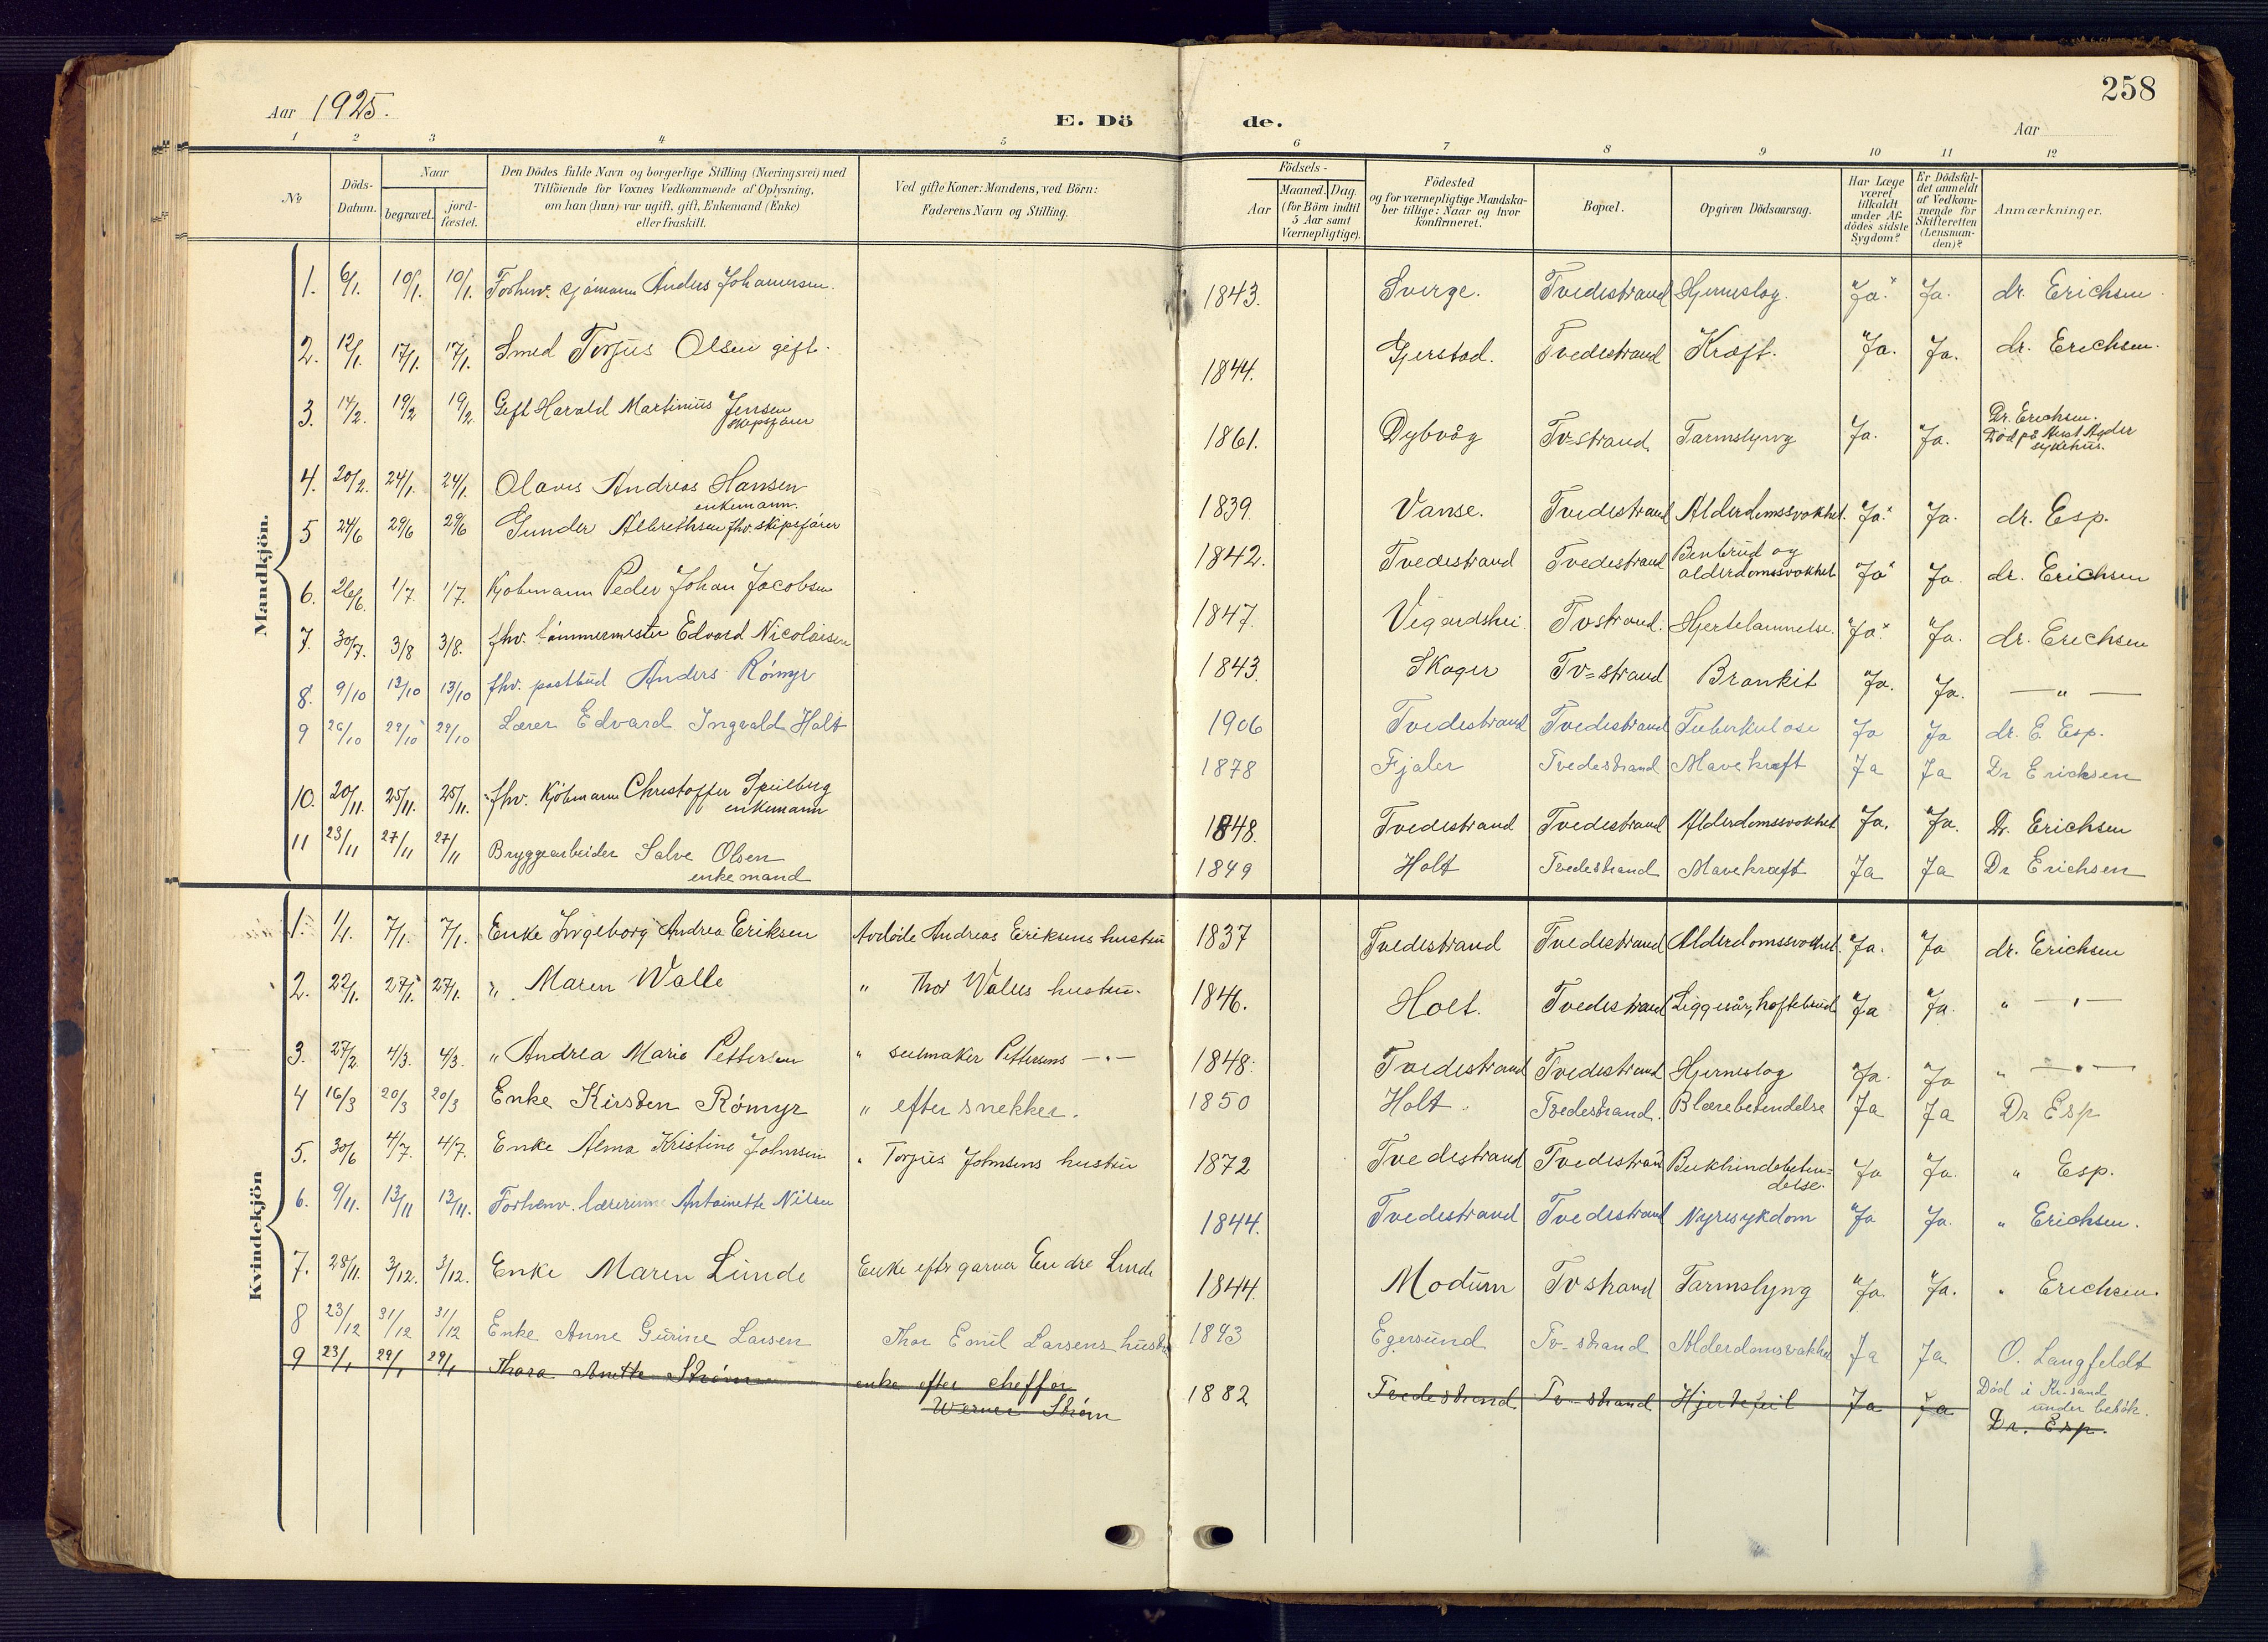 258
Aar 1925.
E. Dö de.
Aar
1 2 3 4 5 6 7 8 9 10 11 12
№
Döds-Datum.
Naar
begravet.
jord-fæstet.
Den Dödes fulde Navn og borgerlige Stilling (Næringsvei) med
Tilföiende for Voxnes Vedkommende af Oplysning,
om han (hun) var ugift, gift, Enkemand (Enke)
eller fraskilt.
Ved gifte Koner: Mandens, ved Börn:
Faderens Navn og Stilling.
Födsels-
Aar
Maaned. Dag.
(for Börn indtil
5 Aar samt
Værnepligtige).
Födested
og for værnepligtige Mandska-
ber tillige: Naar og hvor
konfirmeret.
Bopæl.
Opgiven Dödsaarsag.
Har Læge
været
tilkaldt
under Af-
dödes sidste
Sygdom?
Er Dödsfal-
det anmeldt
af Vedkom-
mende for
Skifteretten
(Lensman-
den)?
Anmærkninger.
Mandkjön.
1. 6/1. 10/1. 10/1. Forhenv. sjømann Anders Johannesen. 1843. Sverge. Tvedestrand Hjerneslag. Ja. Ja. dr. Erichsen.
2. 12/1. 17/1. 17/1. Smed Torjus Olsen gift. 1844. Gjerstad. Tvedestrand Kræft. Ja. Ja. dr. Erichsen.
3. 14/2. 19/2 19/2 Gift Harald Martinius Jensen
skipsfører 1861. Dybvåg Tv-strand. Tarmslyng Ja. Ja. Dr. Erichsen.
Død på Aust Agder
sykehus.
4. 20/2. 24/1. 24/1. Olavus Andreas Hansen
enkemann. 1839. Vanse. Tvedestrand Alderdomssvakhet. Ja. Ja. dr. Esp.
5 24/6 29/6 29/6 Gunder Albrethsen fhv. skipsfører 1842. Tvedestrand Tvedestrand Benbrud og
alderdomssvakhet Ja Ja. dr. Erichsen
6. 26/6. 1/7. 1/7. Kjøbmann Peder Johan Jacobsen 1847. Vegardshei Tvstrand. Hjertelammelse. Ja. Ja. dr. Erichsen
7. 30/7. 3/8 3/8. fhv. tømmermester Edvard Nicolaisen 1843. Skager Tv=strand Bronkit Ja. Ja. — " —
8. 9/10 13/10 13/10 fhv. postbud Anders Rømyr 1906 Tvedestrand Tvedestrand Tuberkulose Ja Ja dr. E. Esp.
9 26/10 29/10 29/10 Lærer Edvard Ingvald Holt 1878 Fjaler Tvedestrand Mavekræft Ja Ja Dr Erichsen
10. 20/11. 25/11. 25/11. fhv. Kjøbmann Christoffer Speilberg
enkemann 1848. Tvedestrand Tvedestrand Alderdomssvakhet Ja. Ja. Dr. Erichsen
11 23/11 27/11 27/11 Bryggearbeider Salve Olsen
enkemand 1849 Holt Tvedestrand Mavekræft Ja Ja Dr Erichsen
Kvindekjön
1. 1/1. 7/1. 7/1. Enke Ingeborg Andrea Eriksen Avdøde Andreas Eriksens hustru 1837 Tvedestrand Tvedestrand Alderdomssvakhet. Ja. Ja dr. Erichsen
2. 22/1. 27/1. 27/1. " Maren Walle " Thor Valles hustru. 1846. Holt. Tvedestrand Liggesår, hoftebrud Ja Ja. " — " —
3. 27/2. 4/3. 4/3. " Andrea Marie Pettersen " seilmaker Pettersens — " — 1848. Tvedestrand Tvedestrand Hjerneslag Ja. Ja " — " —
4 16/3 20/3 20/3 Enke Kirsten Rømyr " efter snekker. 1850 Holt. Tvedestrand. Blærebetendelse Ja Ja Dr Esp
5. 30/6 4/7. 4/7. Enke Alma Kristine Johnsen " Torjus Johnsens hustru 1872 Tvedestrand Tvedestrand Bukhindebeten=
delse. Ja Ja. " Esp.
6. 9/11. 13/11 13/11. Forhenv. lærerinne Antoinette Nilsen 1844. Tvedestrand Tvedestrand Nyresykdom Ja Ja. " Erichsen.
7. 28/11. 3/12. 3/12. Enke Maren Lunde Enke eftr garver Endre Lunde 1844. Modum Tvstrand Tarmslyng Ja. Ja. " Erichsen.
8 23/12 31/12 31/12 Enke Anne Gurine Larsen Thor Emil Larsens hustru 1843 Egersund Tv-strand Alderdomsvakhet Ja Ja O. Langfeldt
9 23/1 29/1 29/1 Thora Anette Strøm enke efter cheffør
Werner Strøm 1882 Tvedestrand Tv-strand Hjertefeil Ja Ja Død i Kr.sand
under besøk.
Dr. Esp.